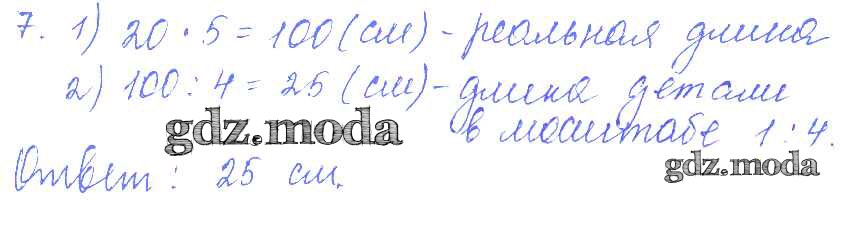 7. 1) 20 · 5 = 100 (см) - реальная длина
2) 100 : 4 = 25 (см) - длина детали
gdz.moda
в масштабе 1 : 4.
gdz.moda
Ответ: 25 см.